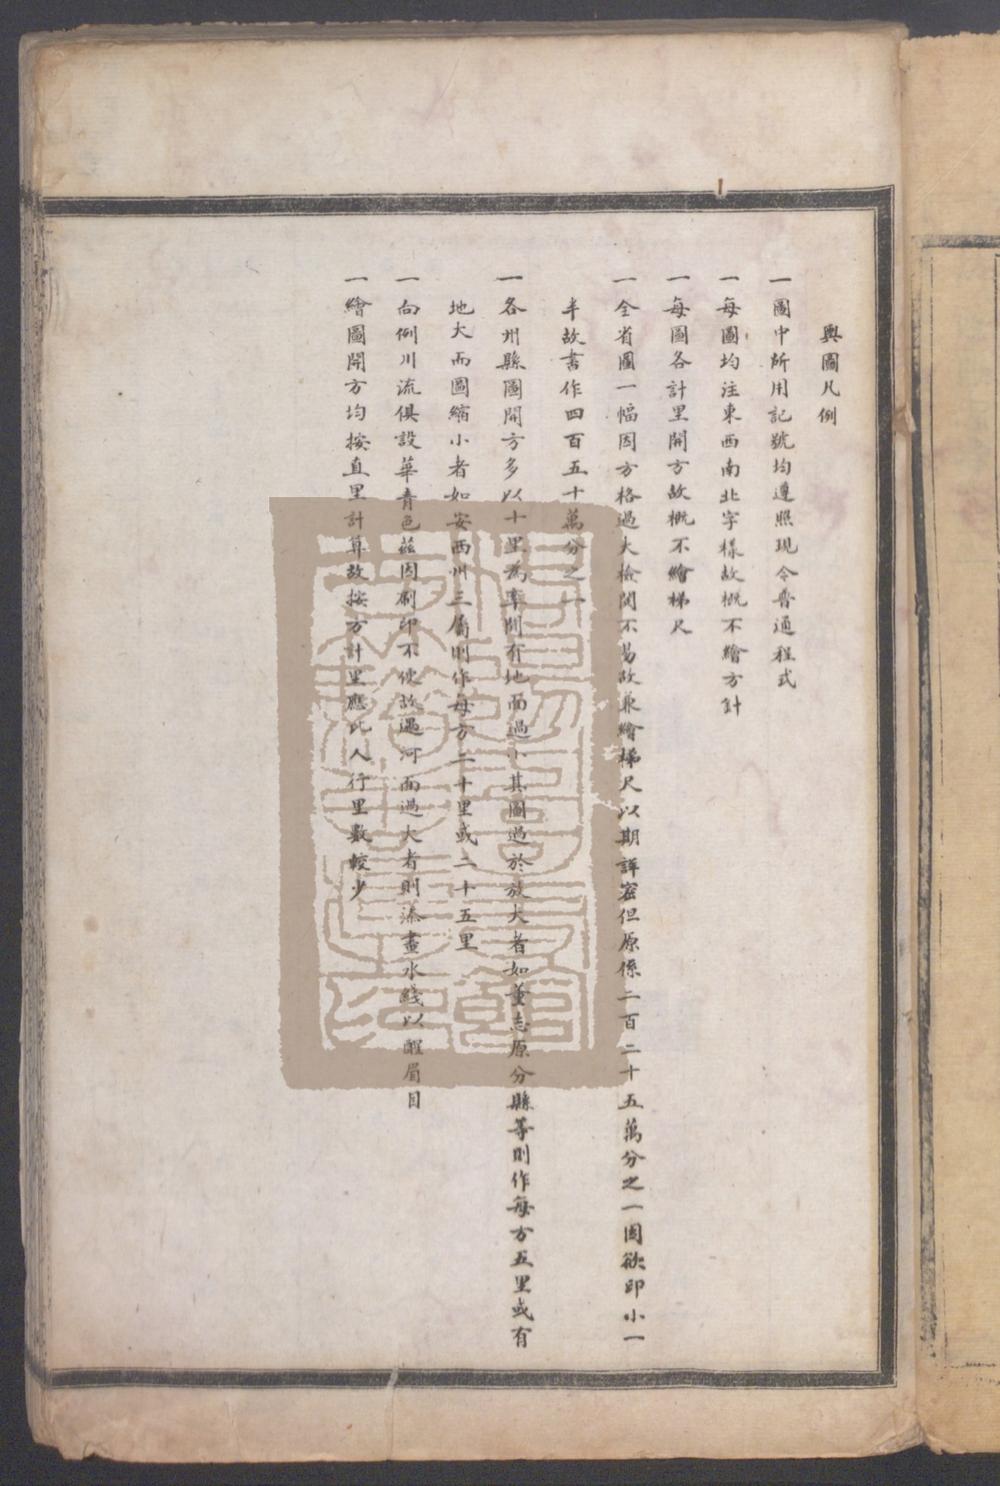 輿圖凡例
一圖中所用記號均遵照現令普通程式
一每圖均注東西南北字樣故概不繪方針
一每圖各計里開方故概不繪梯尺
一全省圖一幅因方格過大檢閱不易故兼繪梯尺以期詳密但原係二百二十五萬分之一因欲印小一
半故書作四百五十萬分之一
一各州縣圖開方多以十里為率間有地面過小其圖過於放大者如董志原分縣等則作每方五里或有
地大而圖縮小者如安西州三屬則作每方二十里或二十五里
一向例川流俱設華青色茲因刷印不便故遇河面過大者則添畫水綫以醒眉目
一繪圖開方均按直里計算故按方計里應比人行里數較少